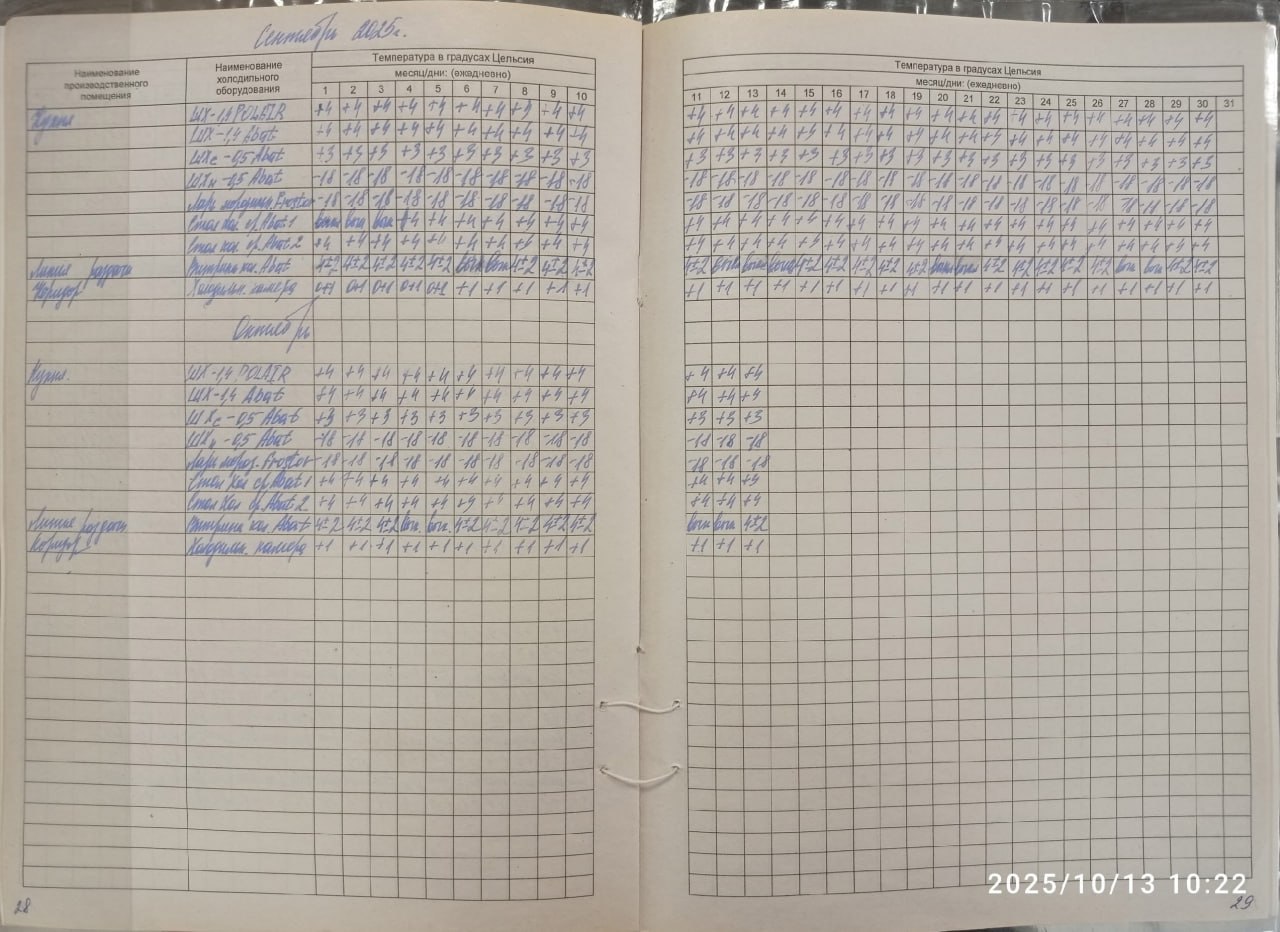 Сентябрь 2025г.
Наименование производственного помещения
Наименование холодильного оборудования
Температура в градусах Цельсия
месяц/дни: (ежедневно)
1 2 3 4 5 6 7 8 9 10
Температура в градусах Цельсия
месяц/дни: (ежедневно)
11 12 13 14 15 16 17 18 19 20 21 22 23 24 25 26 27 28 29 30 31
Кухня ШХ-1,4 POLAIR +4 +4 +4 +4 +4 +4 +4 +4 +4 +4 +4 +4 +4 +4 +4 +4 +4 +4 +4 +4 +4 +4 +4 +4 +4 +4 +4 +4 +4 +4
ШХ-1,4 Abat +4 +4 +4 +4 +4 +4 +4 +4 +4 +4 +4 +4 +4 +4 +4 +4 +4 +4 +4 +4 +4 +4 +4 +4 +4 +4 +4 +4 +4 +4
ШХс-0,5 Abat +3 +3 +3 +3 +3 +3 +3 +3 +3 +3 +3 +3 +3 +3 +3 +3 +3 +3 +3 +3 +3 +3 +3 +3 +3 +3 +3 +3 +3 +3
ШХн-0,5 Abat -18 -18 -18 -18 -18 -18 -18 -18 -18 -18 -18 -18 -18 -18 -18 -18 -18 -18 -18 -18 -18 -18 -18 -18 -18 -18 -18 -18 -18 -18
Ларь морозильн. Frostor -18 -18 -18 -18 -18 -18 -18 -18 -18 -18 -18 -18 -18 -18 -18 -18 -18 -18 -18 -18 -18 -18 -18 -18 -18 -18 -18 -18 -18 -18
Стол хол. ср. Abat 1 +4 +4 +4 +4 +4 +4 +4 +4 +4 +4 +4 +4 +4 +4 +4 +4 +4 +4 +4 +4 +4 +4 +4 +4 +4 +4 +4
Стол хол. ср. Abat 2 +4 +4 +4 +4 +4 +4 +4 +4 +4 +4 +4 +4 +4 +4 +4 +4 +4 +4 +4 +4 +4 +4 +4 +4 +4 +4 +4 +4 +4 +4
Линия раздачи Витрина хол. Abat 4±2 4±2 4±2 4±2 4±2 4±2 4±2 4±2 4±2 4±2 4±2 4±2 4±2 4±2 4±2 4±2 4±2 4±2 4±2 4±2 4±2
Коридор Холодильн. камера 0+1 0+1 0+1 0+1 0+1 +1 +1 +1 +1 +1 +1 +1 +1 +1 +1 +1 +1 +1 +1 +1 +1 +1 +1 +1 +1 +1 +1 +1 +1 +1
Октябрь
Кухня. ШХ-1,4 POLAIR +4 +4 +4 +4 +4 +4 +4 +4 +4 +4 +4 +4 +4
ШХ-1,4 Abat +4 +4 +4 +4 +4 +4 +4 +4 +4 +4 +4 +4 +4
ШХс-0,5 Abat +3 +3 +3 +3 +3 +3 +3 +3 +3 +3 +3 +3 +3
ШХн-0,5 Abat -18 -18 -18 -18 -18 -18 -18 -18 -18 -18 -18 -18 -18
Ларь мороз. Frostor -18 -18 -18 -18 -18 -18 -18 -18 -18 -18 -18 -18 -18
Стол хол ср. Abat 1 +4 +4 +4 +4 +4 +4 +4 +4 +4 +4 +4 +4 +4
Стол хол ср. Abat 2 +4 +4 +4 +4 +4 +4 +4 +4 +4 +4 +4 +4 +4
Линия раздачи Витрина хол. Abat 4±2 4±2 4±2 4±2 4±2 4±2 4±2 4±2 4±2
Коридор Холодильн. камера +1 +1 +1 +1 +1 +1 +1 +1 +1 +1 +1 +1 +1
2025/10/13 10:22
28
29